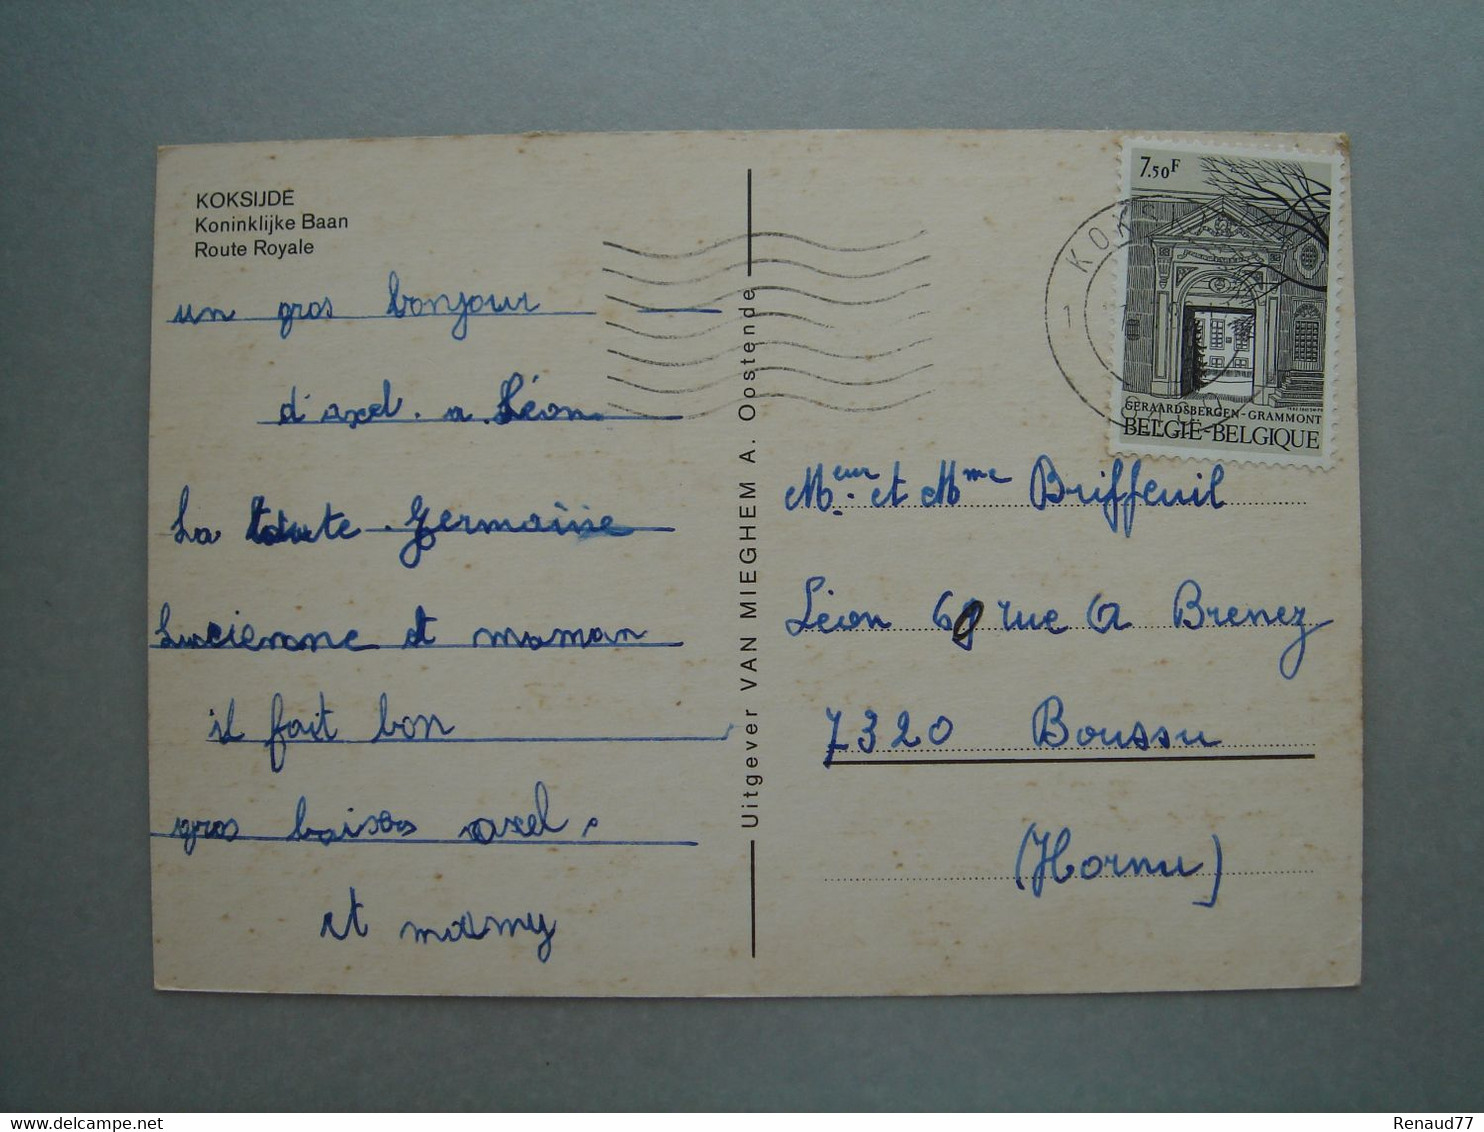 KOKSIJDE
Koninklijke Baan
Route Royale
un gros bonjour
d'axel. a Léon
La toute Germaine
Lucienne et maman
il fait bon
gros baisers axel.
et mamy
Uitgever VAN MIEGHEM A. Oostende
7.50F
GERAARDSBERGEN-GRAMMONT
BELGIË-BELGIQUE
KOK
Meur. et Mme Briffeuil
Léon 60 rue A Brenez
7320 Boussu
(Hornu)
Renaud77